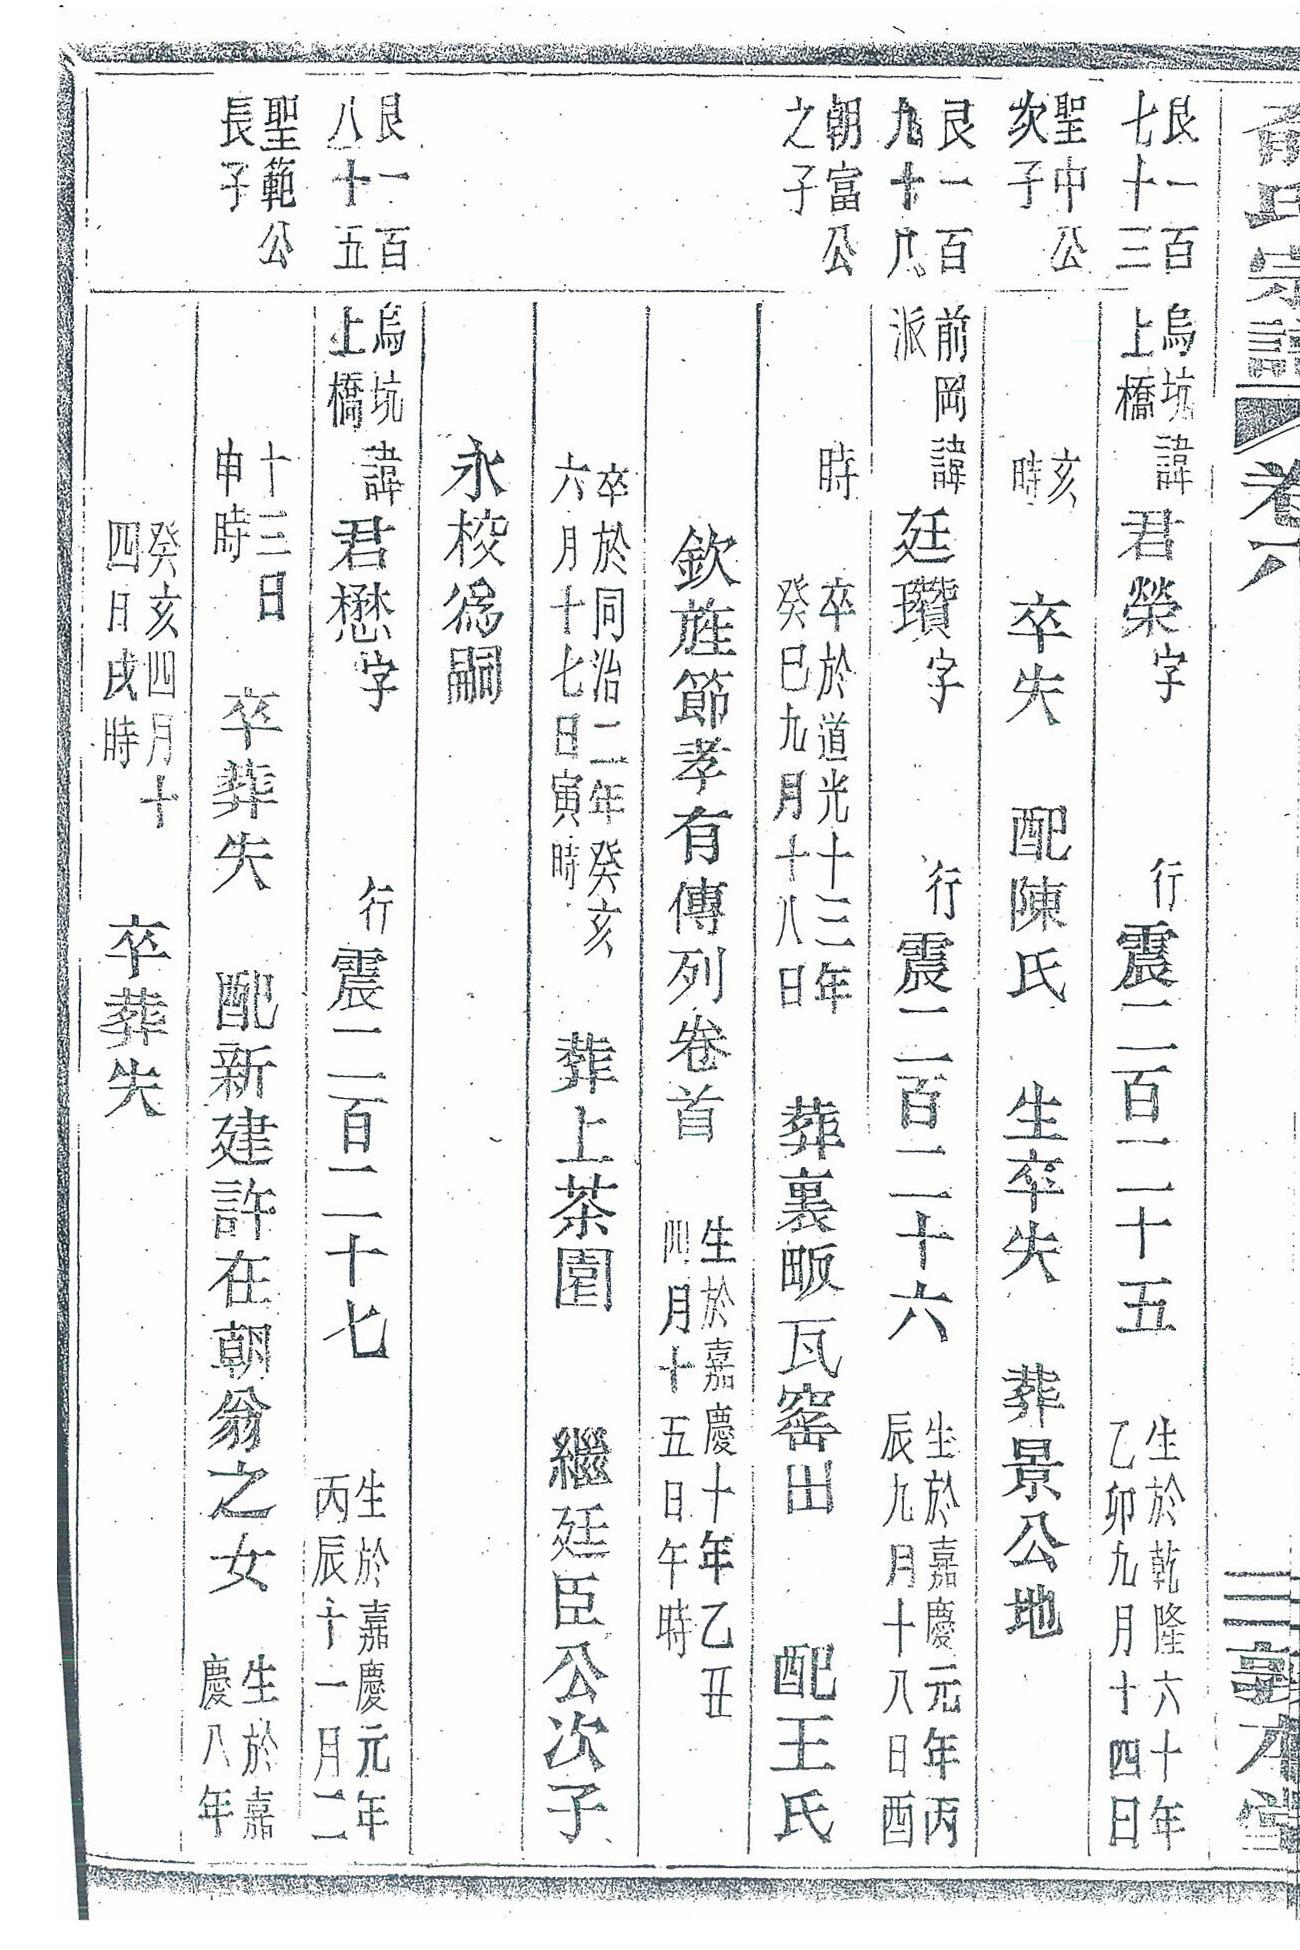 氏宗譜
卷六
三
本堂
艮一百
七十三
聖中公
次子
艮一百
九十八
朝富公
之子
艮一百
八十五
聖範公
長子
烏坑
上橋
諱君榮字
行震二百二十五
生於乾隆六十年
乙卯九月十四日
亥
時
卒失
配陳氏
生卒失
葬景公地
前岡
派
諱廷瓚字
行震二百二十六
生於嘉慶元年丙
辰九月十八日酉
時
卒於道光十三年
癸巳九月十八日
葬裏畈瓦窰出
配王氏
欽旌節孝有傳列卷首
生於嘉慶十年乙丑
四月十五日午時
卒於同治二年癸亥
六月十七日寅時
葬上茶園
繼廷臣公次子
永梭爲嗣
烏坑
上橋
諱君懋字
行震二百二十七
生於嘉慶元年
丙辰十一月二
十三日
申時
卒葬失
配新建許在朝翁之女
生於嘉
慶八年
癸亥四月十
四日戌時
卒葬失